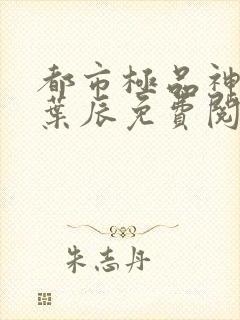 都市極品神
葉辰免費閱
朱志丹